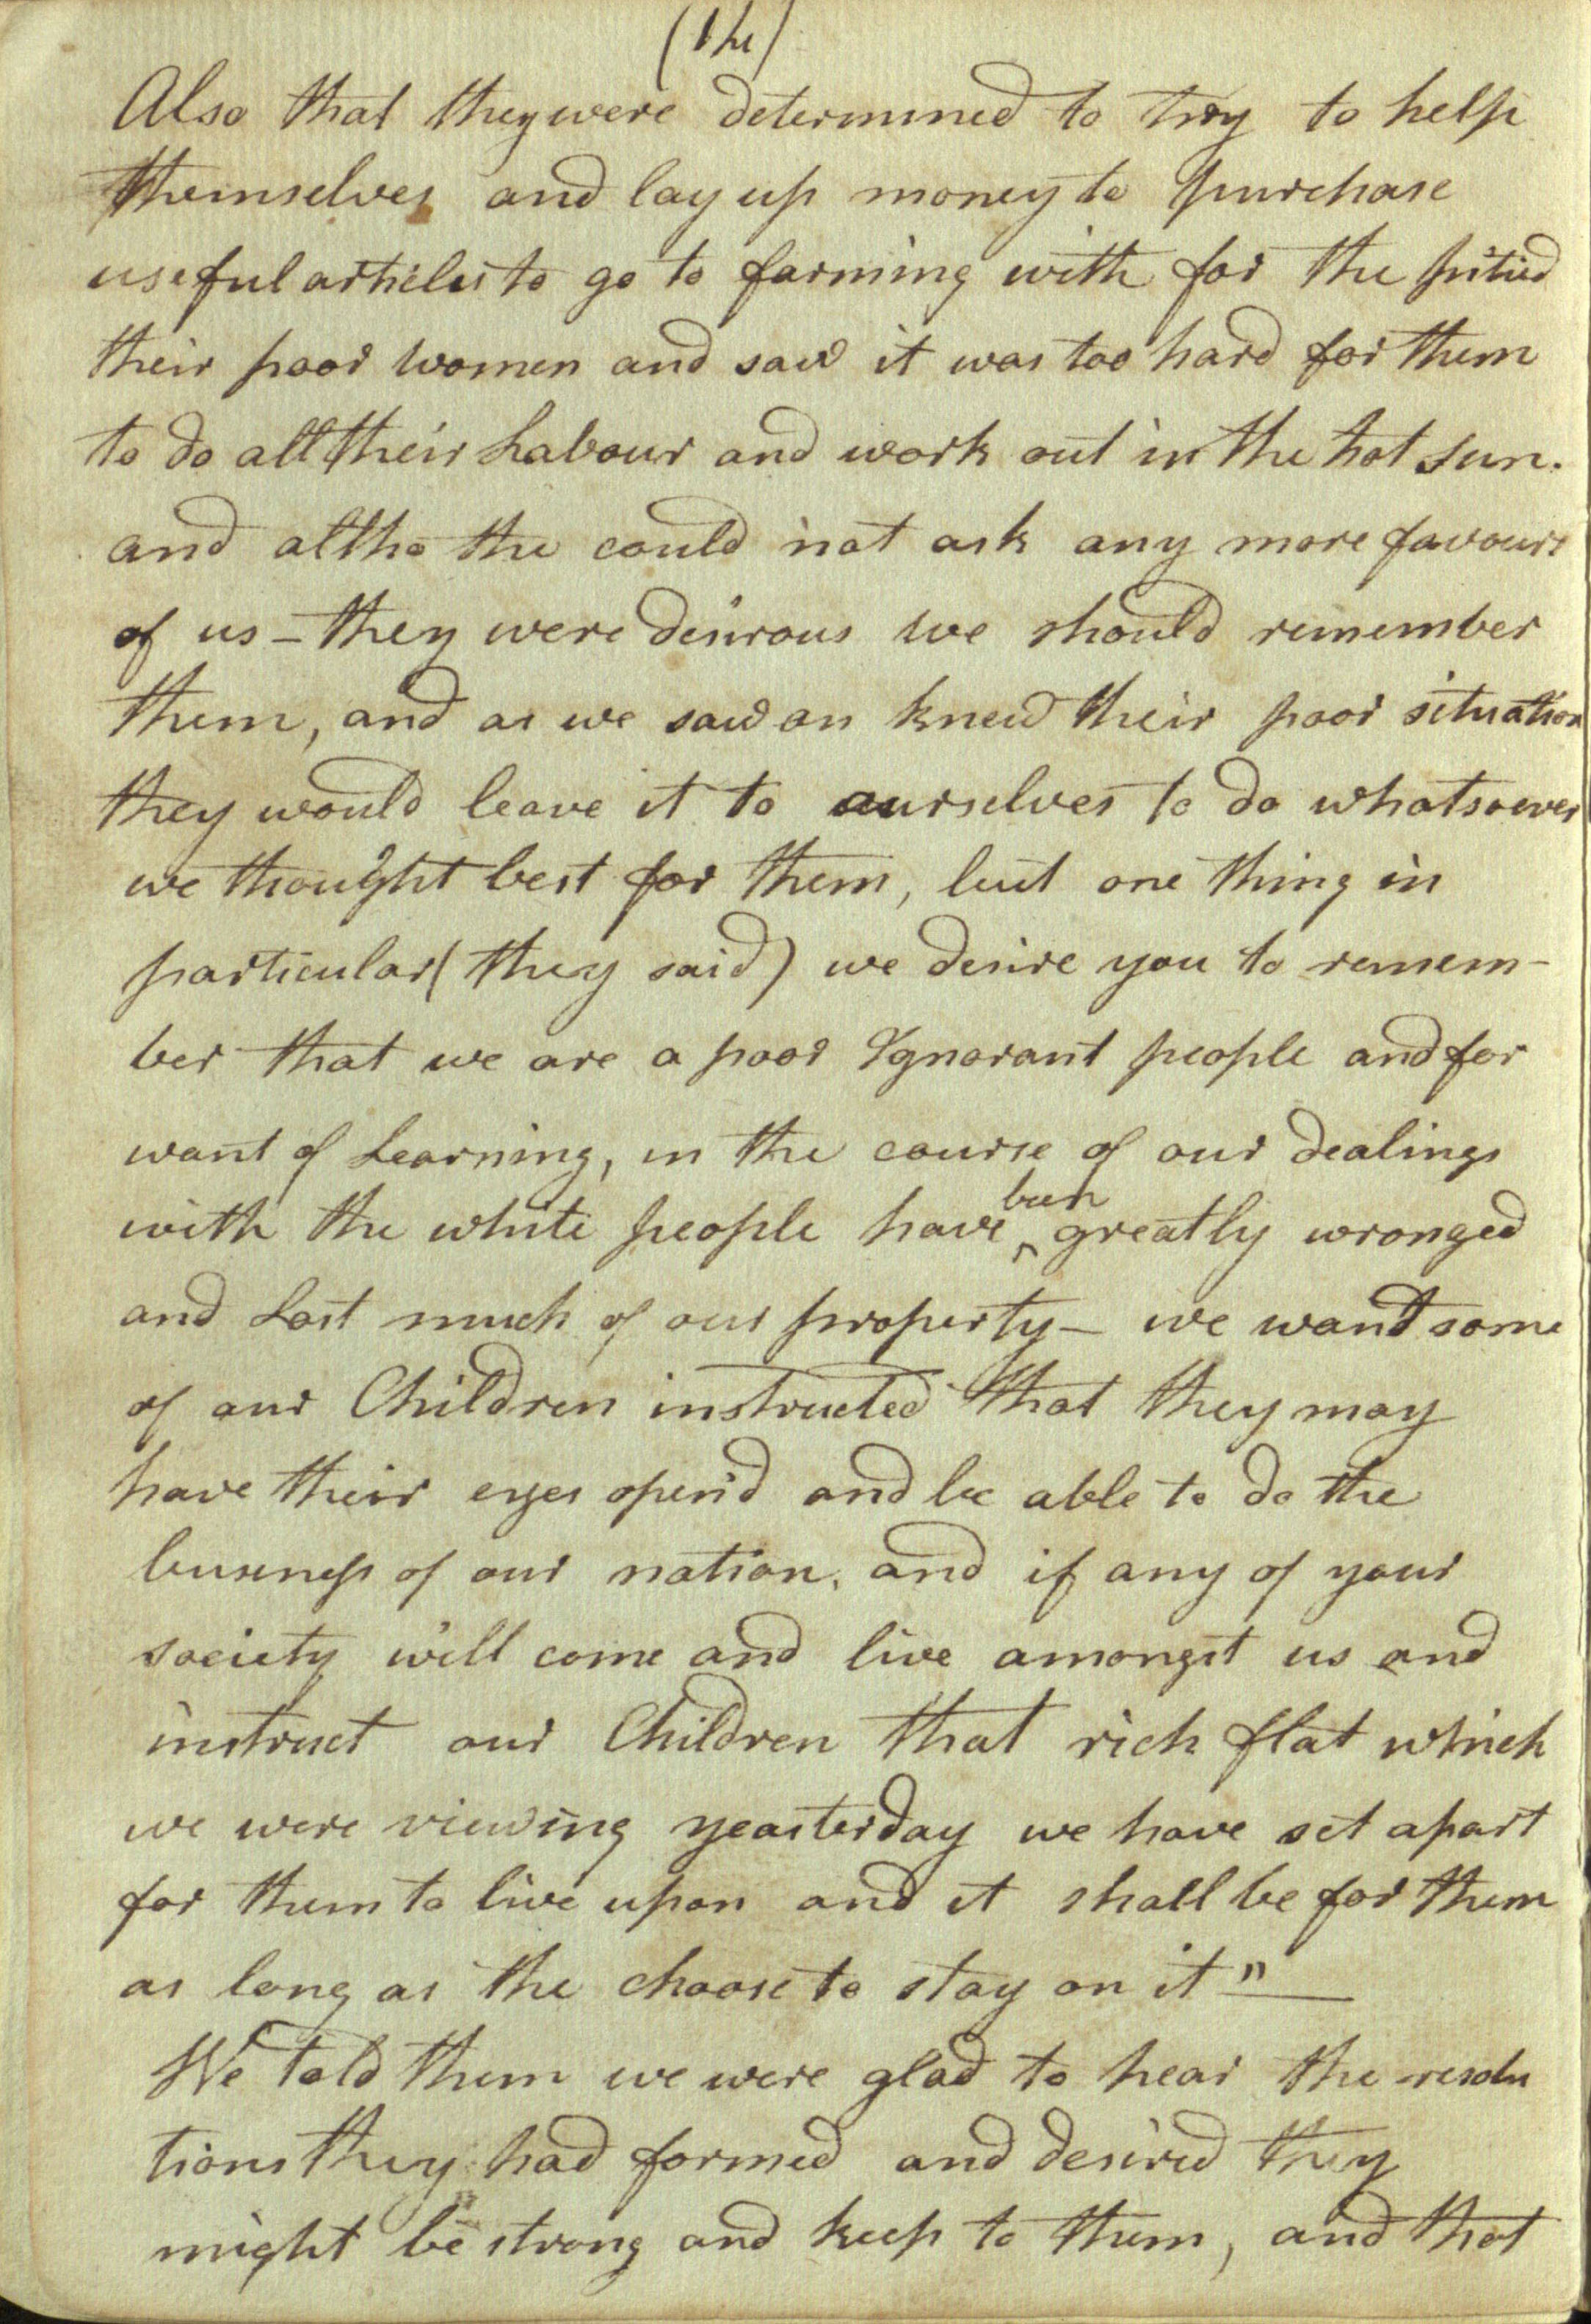 Also that they were determined to try to help
themselves and lay up money to purchase
useful articles to go to farming with for the pitied
their poor women and saw it was too hard for them
to do all their Labour and work out in the hot sun.
and altho the could not ask any more favours
of us – they were desirous we should remember
them, and as we saw an knew their poor situation
they would leave it to ourselves to do whatsoever
we thought best for them, but one thing in
particular (they said) we desire you to remem-
ber that we are a poor Ignorant people and for
want of Learning, in the course of our dealings
with the white people have been greatly wronged
and Lost much of our property – we want some
of our Children instructed that they may
have their eyes open'd and be able to do the
buseness of our nation, and if any of your
society will come and live amongst us and
instruct our Children that rich flat which
we were viewing yeasterday we have set apart
for them to live upon and it shall be for them
as long as the choose to stay on it"
We told them we were glad to hear the resolu
tions they had formed and desired they
might be strong and keep to them, and that